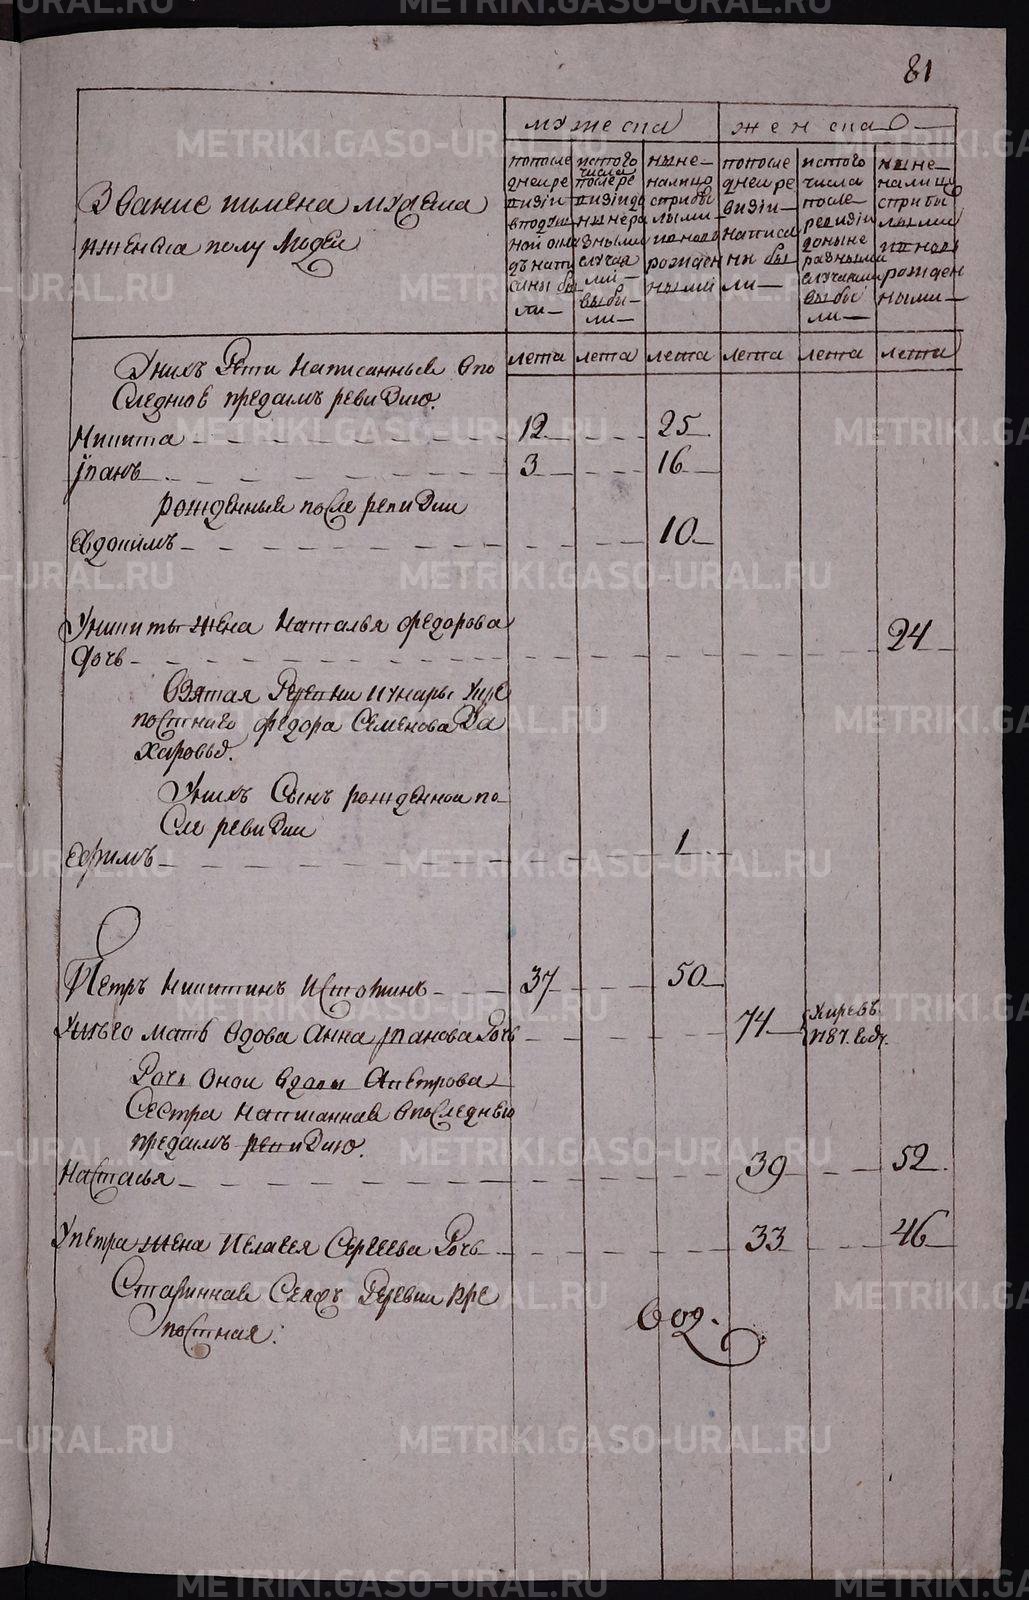 81
мужеска
женска
Звание имена мужеска
и женска полу людеи
попосле
днеи ре
визiи
в подуш
ной окла
дъ напи
саны бы
ли
истого
числа
после ре
визiи до
ныне ра
зными
случая
ми
выбы
ли
ныне
налицо
с прибы
лыми
и вновь
рожден
ными
попосле
днеи ре
визiи
написа
ны бы
ли
истого
числа
после
ревизiи
доныне
разными
случаями
выбы
ли
ныне
налицо
с прибы
лыми
и вновь
рожден
ными
лета лета лета лета лета лета
У нихъ дети написанные в по
следнюю предъ симъ ревизию.
Никита 12 25
Iванъ 3 16
рожденные после ревизии
Евдокимъ 10
У никиты жена Наталья Федорова
дочь 24
взятая деревни
постнаго федора Семенова За
харовыд.
У нихъ Сынъ рожденнои по
сле ревизии
Ефимъ 1
Петръ Никитинъ Истоминъ 37 50
У него мать вдова Анна Iванова дочь 74
787. году
Дочь Онои вдовы а петрова
Сестра написанная в последнюю
предъ симъ ревизию.
Настасья 39 52
У петра жена Пелагея Сергеева дочь 33 46
Стариннаяя Сеяжъ деревни кре
постная:
602.
METRIKI.GASO-URAL.RU